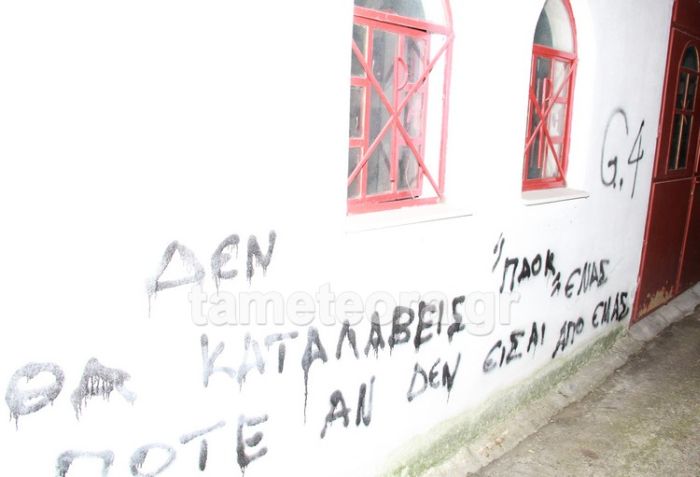 G.4
ΔΕΝ "ΠΑΟΚ"
ΘΑ ΚΑΤΑΛΑΒΕΙΣ ΕΝΑΣ
ΠΟΤΕ ΑΝ ΔΕΝ ΕΙΣΑΙ ΑΠΟ ΕΜΑΣ
tameteora.gr